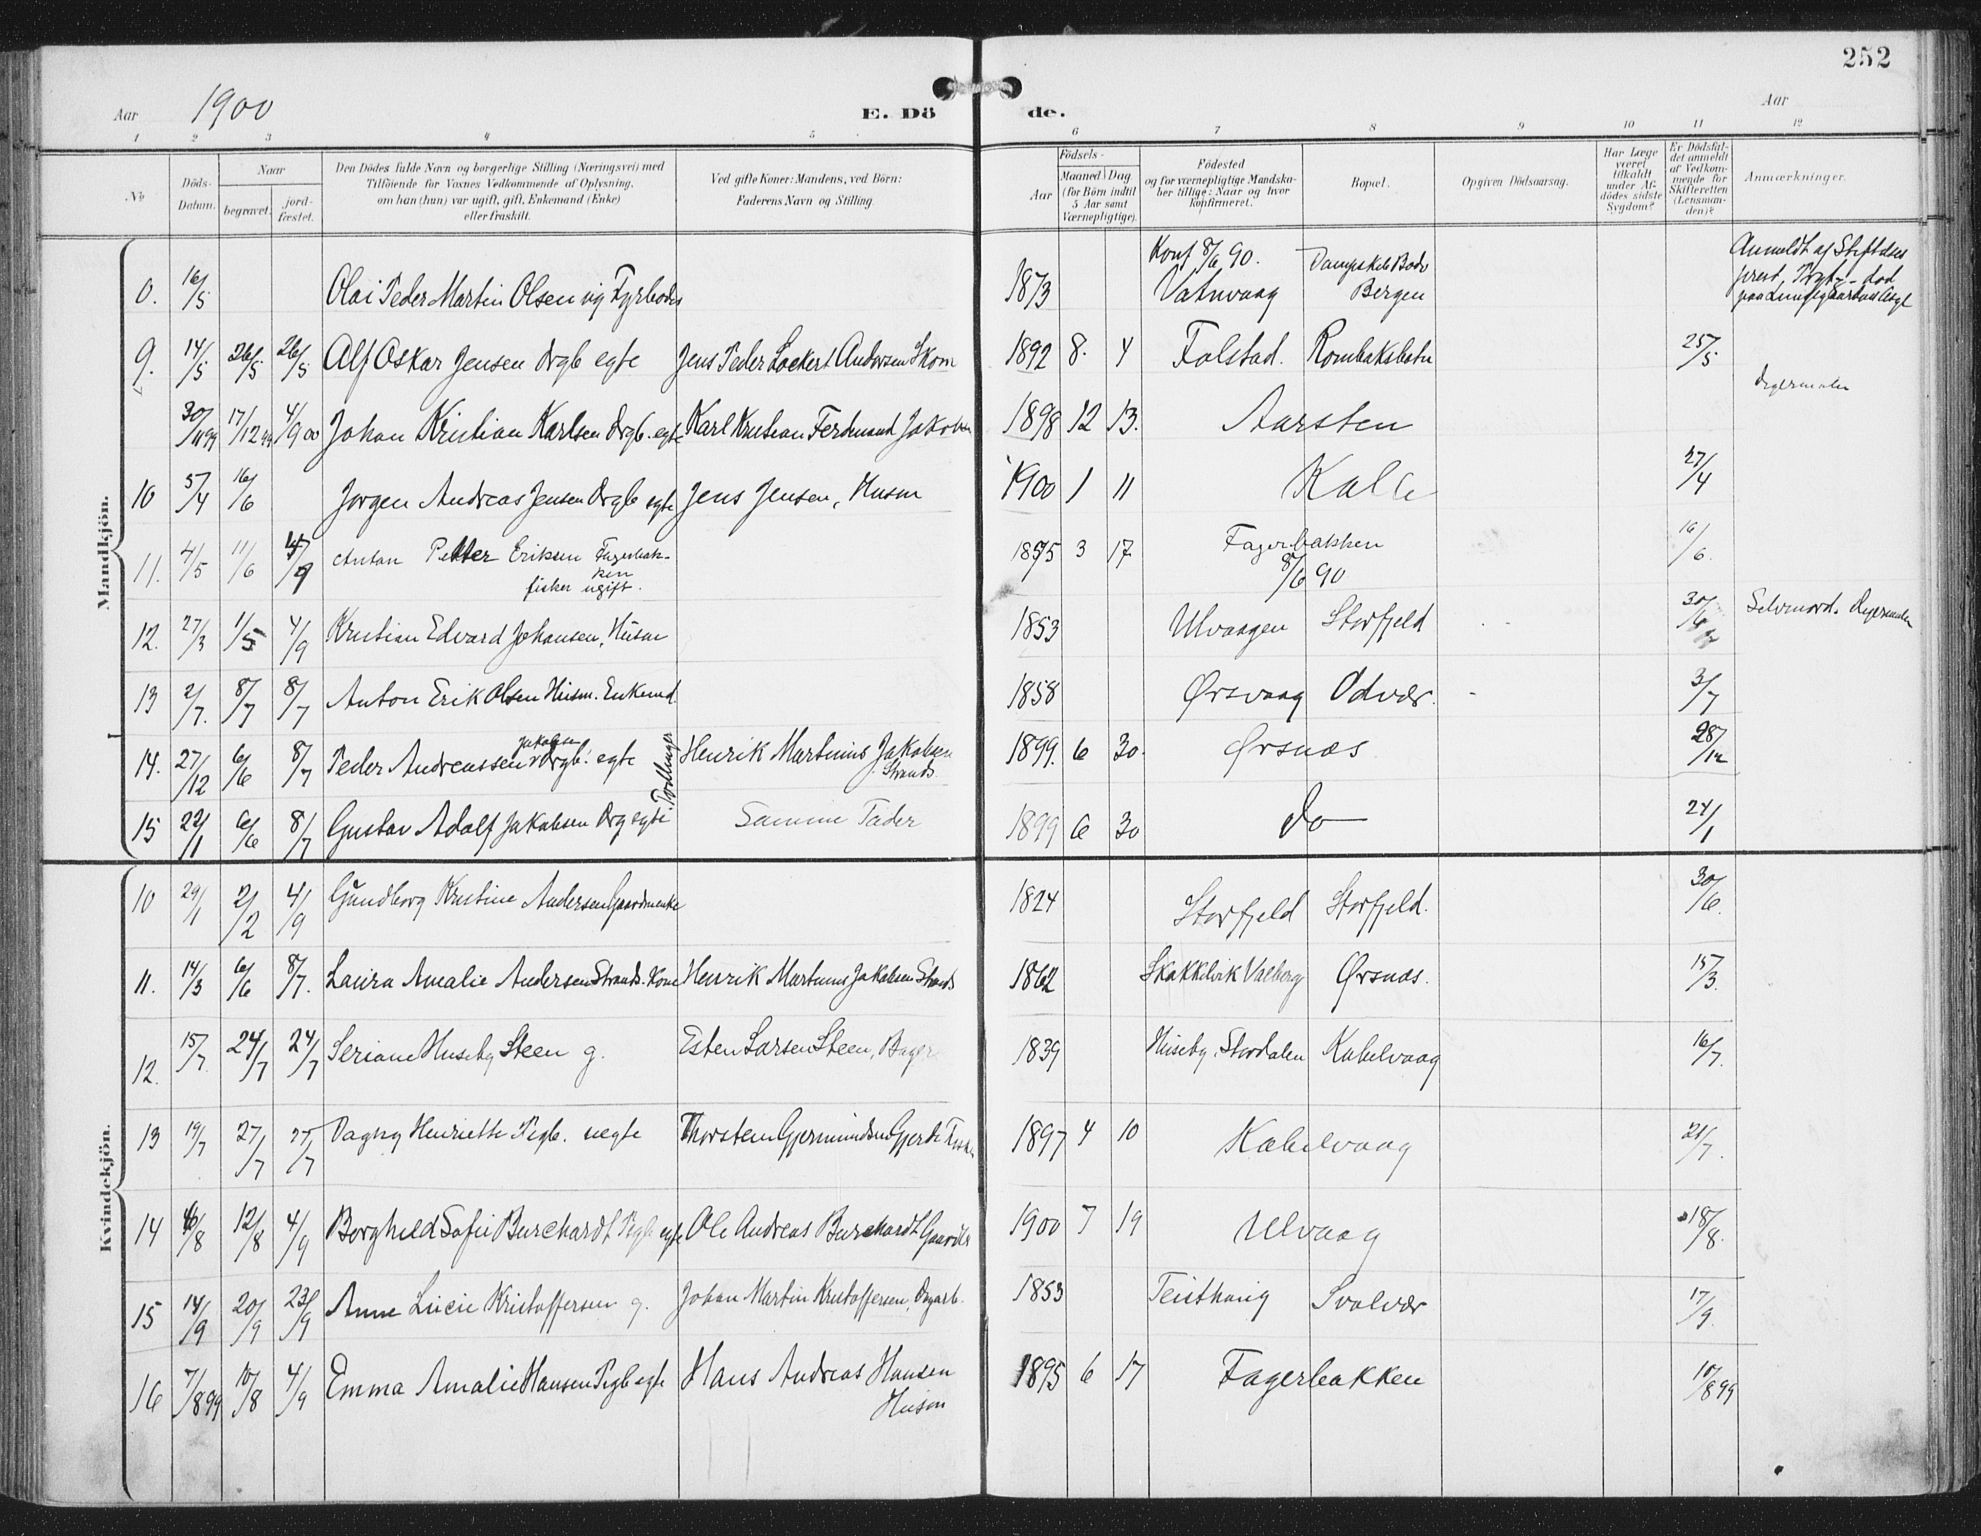 252
Aar 1900 E. Dö de. Aar
1 2 3 4 5 6 7 8 9 10 11 12
No
Döds-Datum.
Naar
begravet.
jord-fæstet.
Den Dödes fulde Navn og borgerlige Stilling (Næringsvei) med
Tilföiende for Voxnes Vedkommende af Oplysning,
om han (hun) var ugift, gift, Enkemand (Enke)
eller fraskilt.
Ved gifte Koner: Mandens, ved Börn:
Faderens Navn og Stilling.
Födsels-
Aar
Maaned Dag
(for Börn indtil
5 Aar samt
Værnepligtige).
Födested
og for værnepligtige Mandska-
ber tillige: Naar og hvor
konfirmeret.
Bopæl.
Opgiven Dödsaarsag.
Har Læge
været
tilkaldt
under Af-
dödes sidste
Sygdom?
Er Dödsfal-
det anmeldt
af Vedkom-
mende for
Skifteretten
(Lensman-
den)?
Anmærkninger.
Mandkjön.
0. 16/5 Olai Peder Martin Olsen ug Fyrböder 1873 Konf 8/6 90. Vatnvaag Dampsk Bodø Bergen Anmeldt af Stiftelses prest, død
9. 14/5 26/5 26/5 Alf Oskar Jensen Drgb egte Jens Peder Lockert Andersen Skom 1892 8. 4 Folstad. Rombaksbotn 25/5
30/11 99 17/12 99 4/9 00 Johan Kristian Karlsen Drgb. egte Karl Kristian Ferdinand Jakobsen 1898 12 13. Aarsten Digermulen
10 5/4 16/6 Jorgen Andreas Jensen Drgb egte Jens Jensen, Husm 1900 1 11 Kalle 27/4
11. 4/5 11/6 4/9 Anton Petter Eriksen Fagerbak-
ken
fisker ugift. 1875 3 17 Fagerbakken 8/6 90 16/6.
12. 27/3 1/5 4/9 Kristian Edvard Johansen, Husm 1853 Ulvaagen Storfjeld 30/6 Selvmord. Digermulen
13 2/7. 8/7 8/7 Anton Erik Olsen Husm. Enkemd. 1858 Ørsvaag Odvær. 3/7
14. 27/12 6/6 8/7 Peder Andreassen Jakobsen Drgb. egte Tvillinger Henrik Martinus Jakobsen Strands. 1899. 6 30. Ørsnæs. 28/12
15 22/1 6/6 8/7 Gustav Adolf Jakobsen Drg egte Samme Fader 1899 6 30 do 24/1
Kvindekjön.
10 29/1 2/2 4/9 Gundborg Kristine Andersen Gaardmenke 1824 Storfjeld Storfjeld. 30/6.
11. 14/3 6/6 8/7. Laura Amalie Andersen Strands. Kone Henrik Martinus Jakobsen Strands 1862 Skokkelvik Valberg Ørsnæs. 15/3.
12. 15/7. 24/7 24/7 Seriane Huseby Steen g. Esten Larsen Steen, Bager 1839 Huseby, Stordalen Kabelvaag 16/7.
13 19/7 27/7 27/7 Dagny Henriette Pigb. uegte Thorstein Gjermundsen Gjerde 1897 4 10 Kabelvaag 21/7.
14 6/8 12/8 4/9 Borghild Sofie Burchardt Pigb. egte Ole Andreas Burchardt Gaardbr 1900 7 19 Ulvaag 18/8.
15 14/9 20/9 23/9 Anne Lucie Kristoffersen g. Johan Martin Kristoffersen, Dagarb. 1853 Teisthaug Svolvær 17/9.
16 7/8 99 10/8 4/9 Emma Amalie Hansen Pigb egte Hans Andreas Hansen
Husm 1895 6 17 Fagerbakken 10/8 99